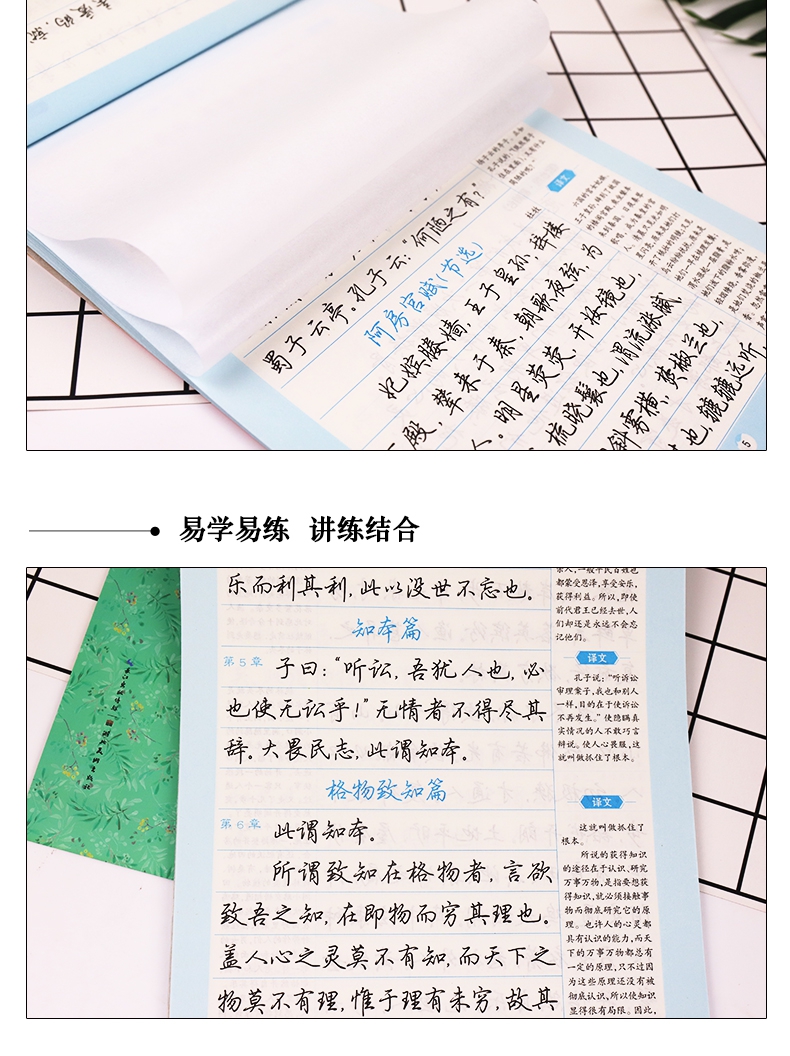 蜀子云亭。孔子云:“何陋之有?”
阿房宫赋(节选)
杜牧
妃嫔媵嫱,王子皇孙,辞楼
殿,辇来于秦,朝歌夜弦,为
人。明星荧荧,开妆镜也,
梳晓鬟也,渭流涨腻,
斜雾横,焚椒兰也,
也,辘辘远听,
译文
5
易学易练 讲练结合
乐而利其利,此以没世不忘也。
知本篇
第5章 子曰:“听讼,吾犹人也,必
也使无讼乎!”无情者不得尽其
辞。大畏民志,此谓知本。
格物致知篇
第6章 此谓知本。
所谓致知在格物者,言欲
致吾之知,在即物而穷其理也。
盖人心之灵莫不有知,而天下之
物莫不有理,惟于理有未穷,故其
亲人,一般平民百姓也
都蒙受恩泽,享受安乐,
获得利益。所以,即使
前代君王已经去世,人
们却还是永远不会忘
记他们。
译文
孔子说:“听诉讼
审理案子,我也和别人
一样,目的在于使诉讼
不再发生。”使隐瞒真
实情况的人不敢巧言
辩说。使人心畏服,这
就叫做抓住了根本。
译文
这就叫做抓住了
根本。
所说的获得知识
的途径在于认识、研究
万事万物,是指要想获
得知识,就必须接触事
物而彻底研究它的原
理。也许人的心灵都
具有认识的能力,而天
下的万事万物都总有
一定的原理,只不过因
为这些原理还没有被
彻底认识,所以使知识
显得很有局限。因此,